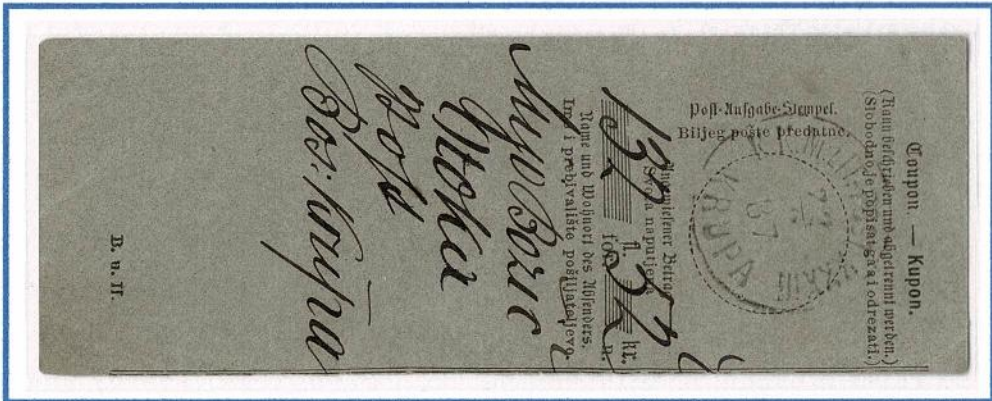 Coupon. — Kupon.
(Kann beschrieben und abgetrennt werden.)
(Slobodno je popisat ga ai odrezati.)
Post-Aufgabe-Stempel.
Biljeg pošte predatne.
KRUPA
87
Angewiesener Betrag
Svota naputjena
132 fl. 52 kr.
for. n.
Name und Wohnort des Absenders.
Ime i prebivalište pošiljateljevo.
Otoka
Post
Bos: Krupa
B. u. H.